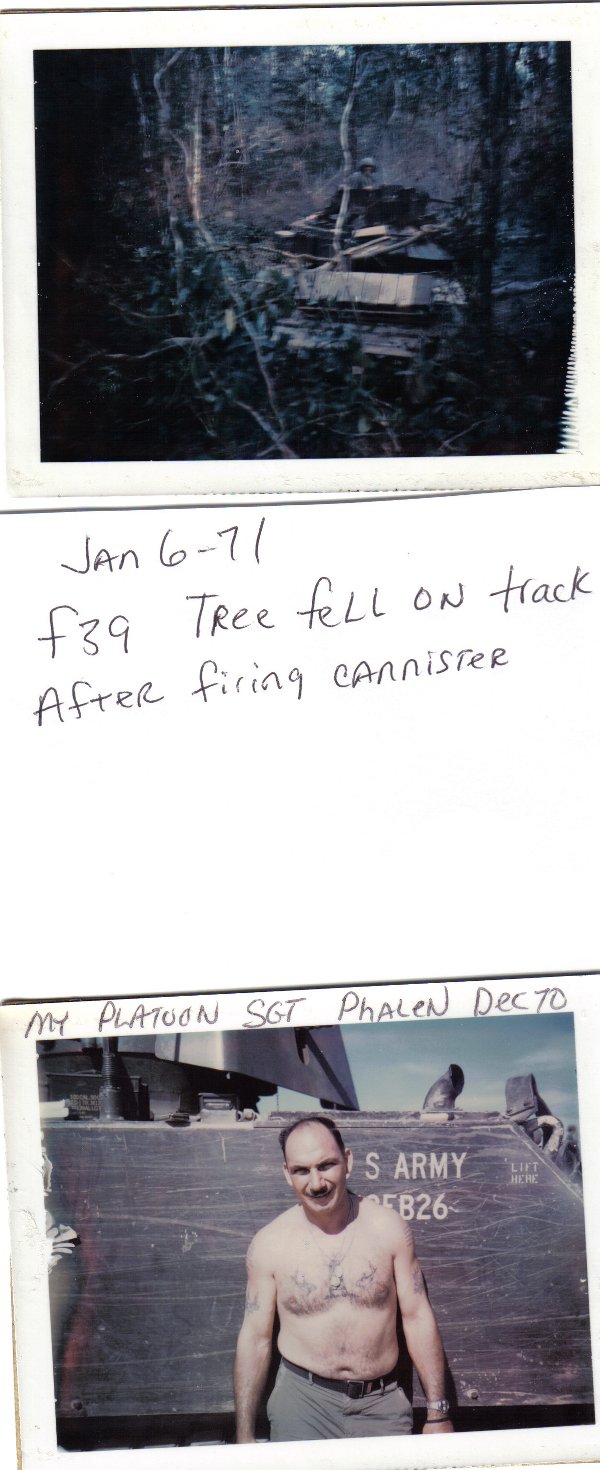 JAN 6-71
F39 TREE FELL ON track
AFTER firing CANNISTER
MY PLATOON SGT PHALEN DEC 70
S ARMY
LIFT
HERE
B26